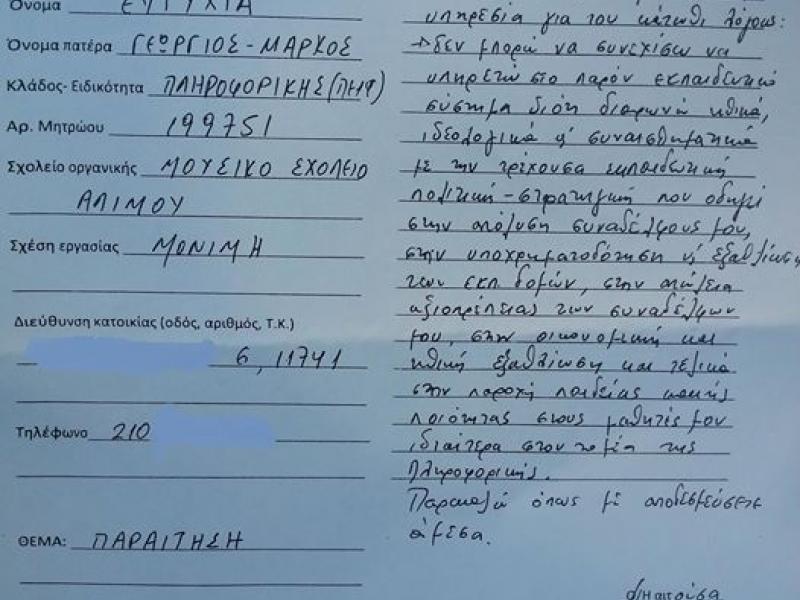 Όνομα ΕΥΤΥΧΙΑ
Όνομα πατέρα ΓΕΩΡΓΙΟΣ-ΜΑΡΚΟΣ
Κλάδος- Ειδικότητα ΠΛΗΡΟΦΟΡΙΚΗΣ (ΠΕ19)
Αρ. Μητρώου 199751
Σχολείο οργανικής ΜΟΥΣΙΚΟ ΣΧΟΛΕΙΟ
ΑΛΙΜΟΥ
Σχέση εργασίας ΜΟΝΙΜΗ
Διεύθυνση κατοικίας (οδός, αριθμός, Τ.Κ.)
6, 11741
Τηλέφωνο 210
ΘΕΜΑ: ΠΑΡΑΙΤΗΣΗ
υπηρεσία για τον κάτωθι λόγους:
→δεν μπορώ να συνεχίσω να
υπηρετώ στο παρόν εκπαιδευτικό
σύστημα διότι διαφωνώ ηθικά,
ιδεολογικά κ' συναισθηματικά
με την τρέχουσα εκπαιδευτική
πολιτική-στρατηγική που οδηγεί
στην απόλυση συναδέλφους μου,
στην υποχρηματοδότηση κ' εξαθλίωση
των εκπ. δομών, στην απώλεια
αξιοπρέπειας των συναδέλφων
μου, στην οικονομική και
ηθική εξαθλίωση και τελικά
στην παροχή παιδείας κακής
ποιότητας στους μαθητές μου
ιδιαίτερα στον τομέα της
Πληροφορικής.
Παρακαλώ όπως με αποδεσμεύσετε
άμεσα.
Η αιτούσα